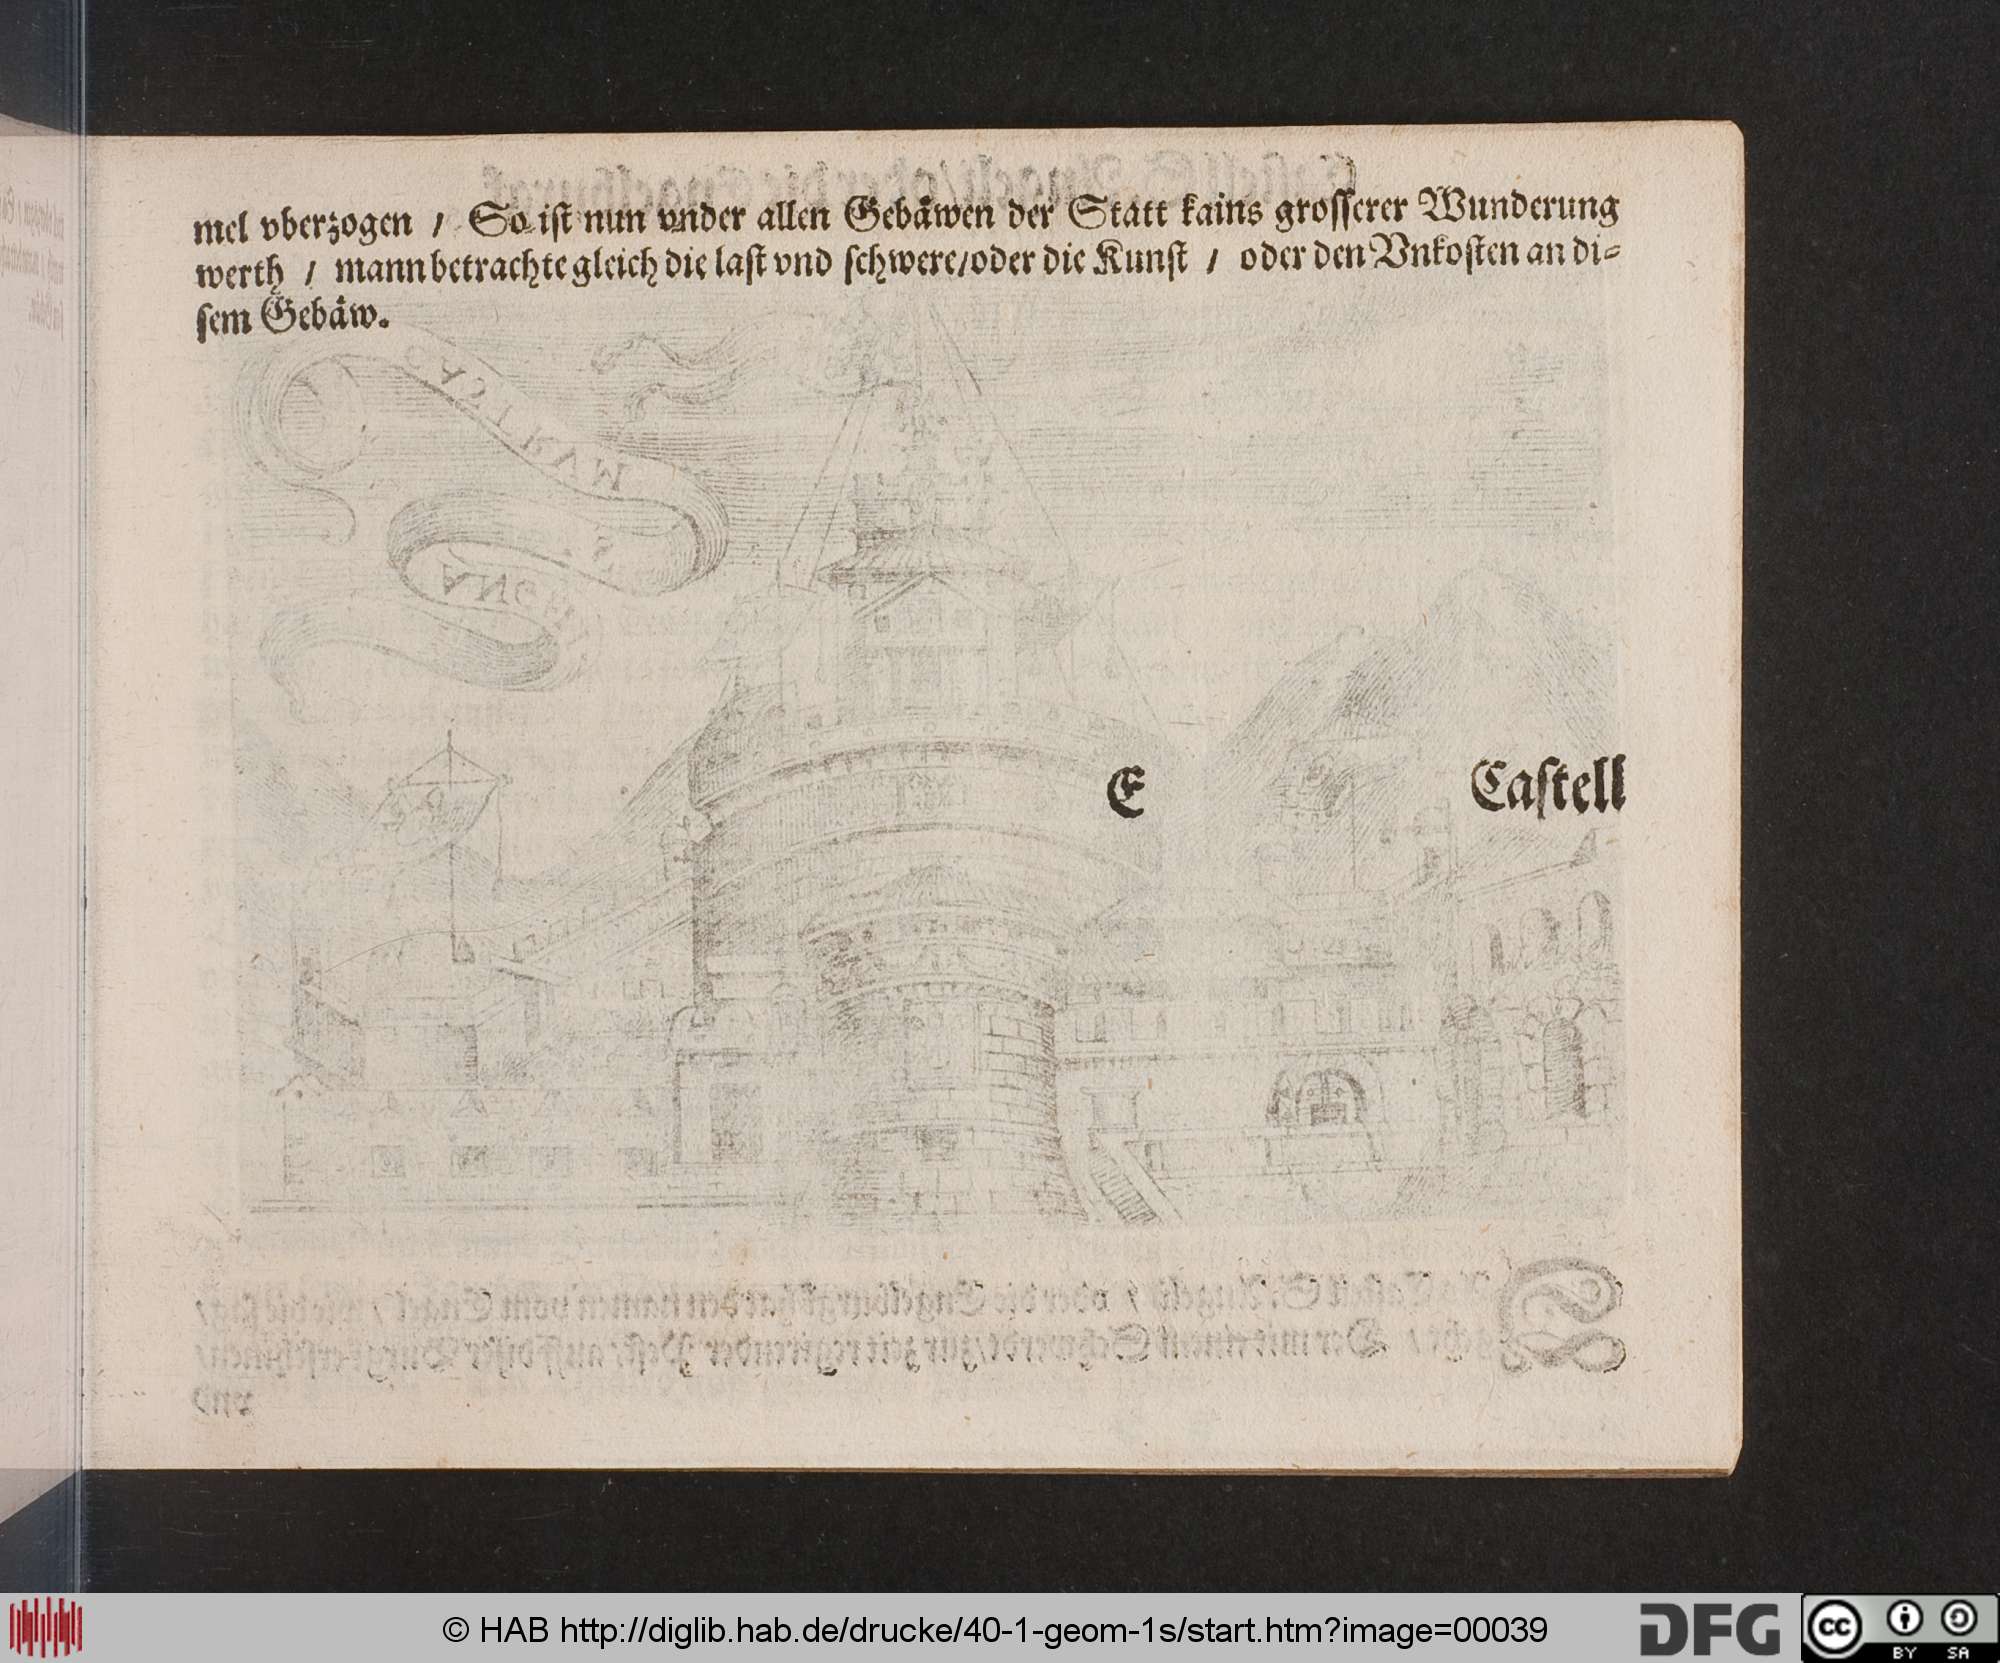 mel vberzogen / So ist nun vnder allen Gebäwen der Statt kains grosserer Wunderung
werth / mann betrachte gleich die last vnd schwere/oder die Kunst / oder den Vnkosten an di-
sem Gebäw.
E Castell
© HAB http://diglib.hab.de/drucke/40-1-geom-1s/start.htm?image=00039
DFG
cc BY SA